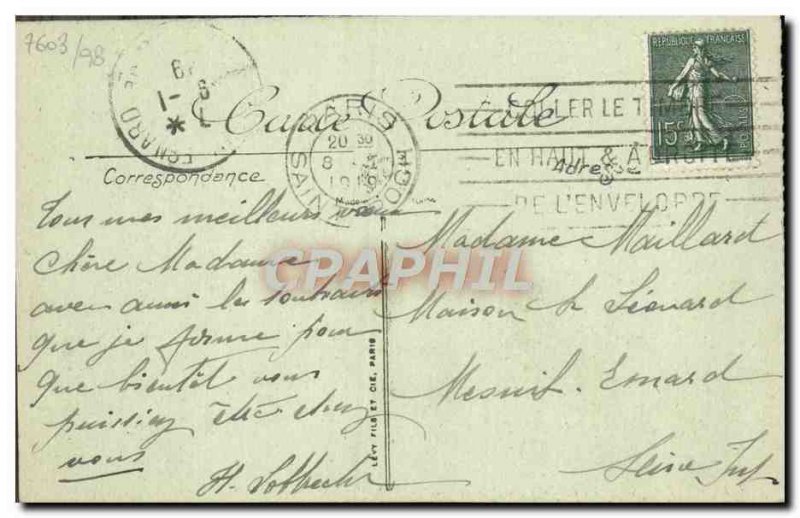 7603/98
Carte Postale
RÉPUBLIQUE FRANÇAISE
15c
POSTES
PARIS
20 30
8 - 1
1919
SAINT ROCH
COLLER LE TIMBRE
EN HAUT & À DROITE
DE L'ENVELOPPE
ESNARD
Correspondance
Adresse
Tous mes meilleurs vœux
chère Madame
avec aussi les souhaits
que je forme pour
que bientôt vous
puissiez être chez
vous
H.
Madame Maillard
Maison Léonard
Mesnil-Esnard
Seine Inf
LÉVY FILS ET CIE, PARIS
CPAPHIL